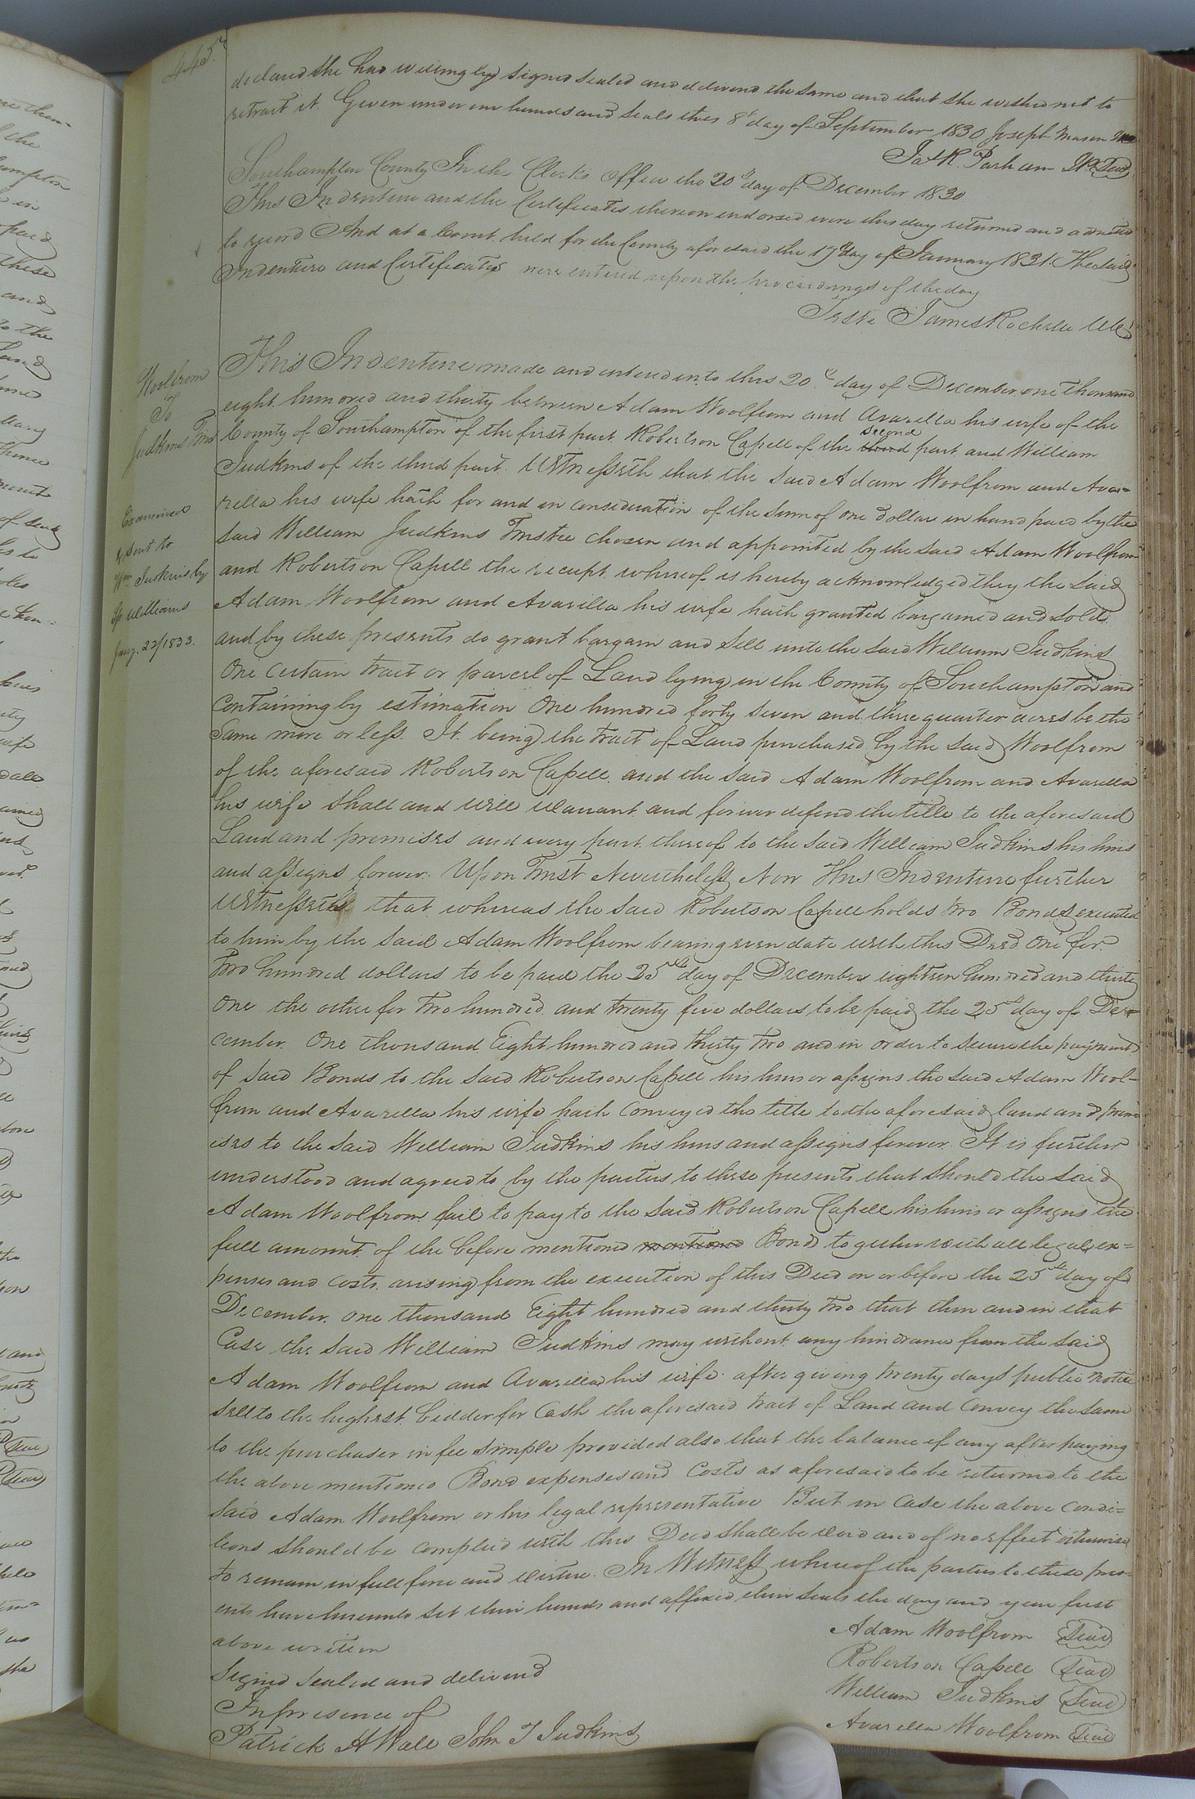 445
declared she had willingly signed sealed and delivered the same and that she wished not to
retract it. Given under our hands and seals this 8th day of September 1830 Joseph Mason
Jas R. Parham JP Seal
Southampton County In the Clerks Office the 20th day of December 1830
This Indenture and the Certificates thereon endorsed were this day returned and admitted
to record And at a Court held for the County aforesaid the 17th day of January 1831 The said
Indenture and Certificates were entered upon the proceedings of the day
Teste James Rochelle Clk
Woolfrom
To
Judkins Trus
Examined
& sent to
Wm Judkins by
Williams
Jany. 23/1833.
This Indenture made and entered into this 20th day of December one thousand
eight hundred and thirty between Adam Woolfrom and Avarilla his wife of the
County of Southampton of the first part Robertson Capell of the second part and William
Judkins of the third part. Witnesseth that the said Adam Woolfrom and Ava=
rilla his wife hath for and in consideration of the sum of one dollar in hand paid by the
said William Judkins Trustee chosen and appointed by the said Adam Woolfrom
and Robertson Capell the receipt whereof is hereby acknowledged they the said
Adam Woolfrom and Avarilla his wife hath granted bargained and sold
and by these presents do grant bargain and sell unto the said William Judkins
One certain tract or parcel of Land lying in the County of Southampton and
containing by estimation One hundred forty seven and three quarter acres be the
same more or less. It being the tract of Land purchased by the said Woolfrom
of the aforesaid Robertson Capell and the said Adam Woolfrom and Avarilla
his wife shall and will warrant and forever defend the title to the aforesaid
Land and premises and every part thereof to the said William Judkins his heirs
and assigns forever. Upon Trust Nevertheless Now This Indenture further
Witnesseth that whereas the said Robertson Capell holds two Bonds executed
to him by the said Adam Woolfrom bearing even date with this Deed One for
Two hundred dollars to be paid the 25th day of December eighteen hundred and thirty
One the other for Two hundred and twenty five dollars to be paid the 25th day of De=
cember One thousand Eight hundred and thirty two and in order to secure the payment
of said Bonds to the said Robertson Capell his heirs or assigns the said Adam Wool=
from and Avarilla his wife hath conveyed the title to the aforesaid land and prem
ises to the said William Judkins his heirs and assigns forever. It is further
understood and agreed to by the parties to these presents that should the said
Adam Woolfrom fail to pay to the said Robertson Capell his heirs or assigns the
full amount of the before mentioned mentioned Bond together with all legal ex=
penses and costs arising from the execution of this Deed on or before the 25th day of
December one thousand Eight hundred and thirty two that then and in that
Case the said William Judkins may without any hindrance from the said
Adam Woolfrom and Avarilla his wife after giving twenty days public notice
sell to the highest bidder for Cash the aforesaid tract of Land and Convey the same
to the purchaser in fee simple provided also that the balance if any after paying
the above mentioned Bond expenses and Costs as aforesaid to be returned to the
said Adam Woolfrom or his legal representative But in Case the above Condi=
tions should be complied with this Deed shall be void and of no effect otherwise
to remain in full force and virtue. In Witness whereof the parties to these pres=
ents have hereunto set their hands and affixed their seals the day and year first
above written
Adam Woolfrom Seal
Signed sealed and delivered
Robertson Capell Seal
In presence of
William Judkins Seal
Patrick H Wall John T Judkins
Avarilla Woolfrom Seal